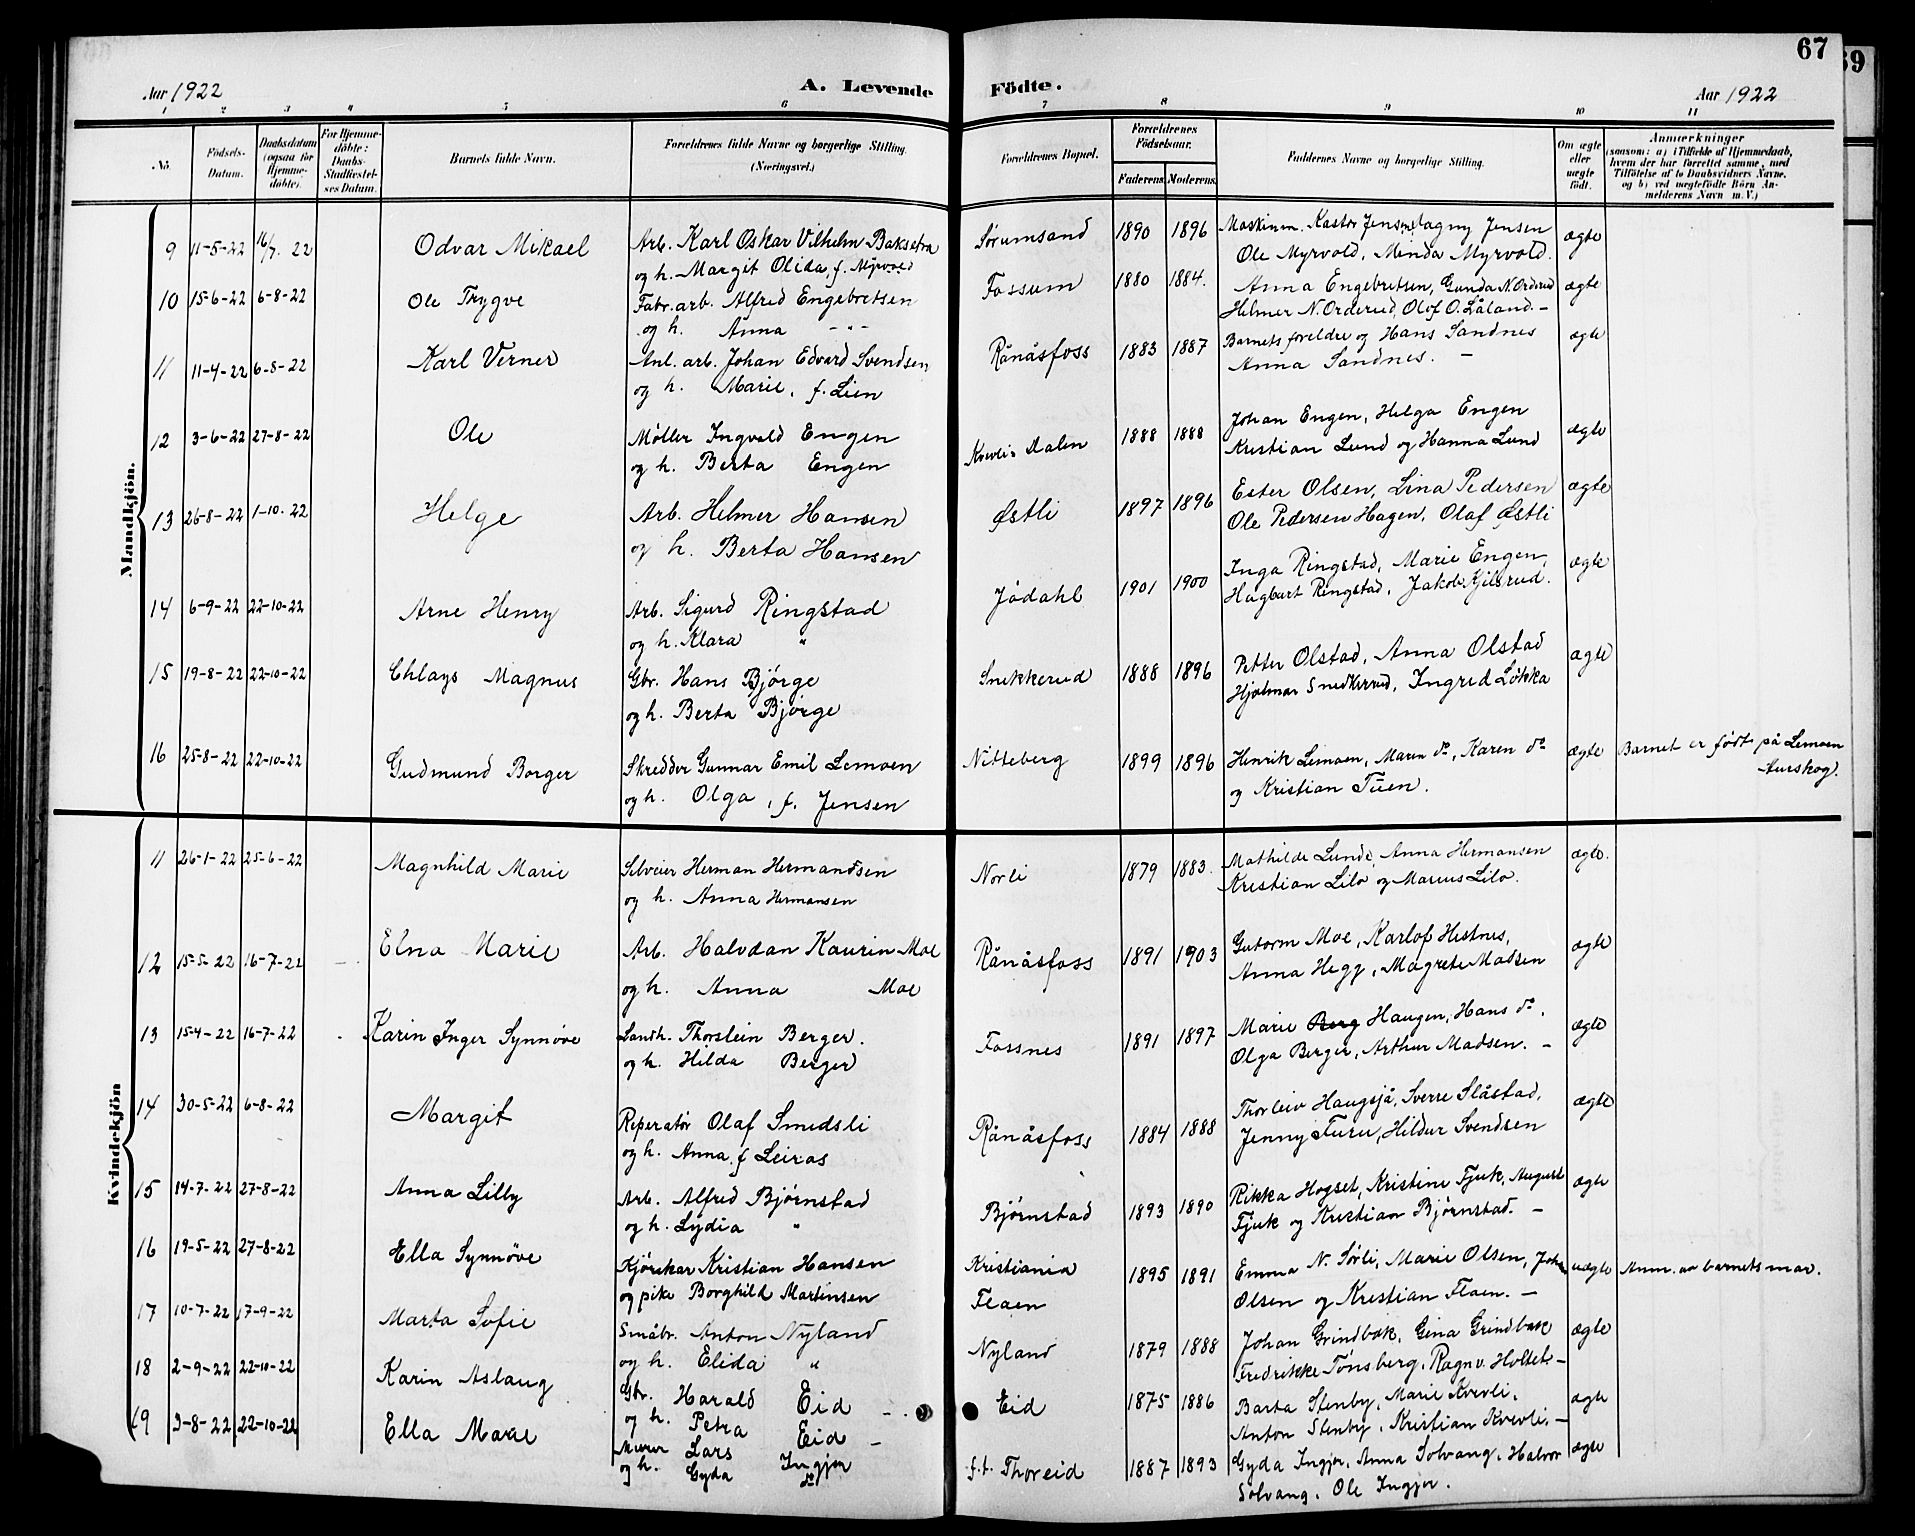 67
69
Aar 1922
A. Levende Födte.
Aar 1922
1 2 3 4 5 6 7 8 9 10 11
No. Födsels-Datum. Daabsdatum (ogsaa for Hjemmedöbte). For Hjemmedöbte: Daabs-Stadfæstelses Datum. Barnets fulde Navn. Forældrenes fulde Navne og borgerlige Stilling. (Næringsvei.) Forældrenes Bopæl. Forældrenes Födselsaar. Faderens. Moderens. Faddernes Navne og borgerlige Stilling. Om ægte eller uægte födt. Anmærkninger
(saasom: a) i Tilfælde af Hjemmedaab, hvem der har forrettet samme, med Tilföielse af to Daabsvidners Navne, og b) ved uægtefödte Börn Anmelderens Navn m. V.)
Mandkjön.
9 11-5-22 16/7. 22 Odvar Mikael Arb. Karl Oskar Vilhelm Baksetra Sørumsand 1890 1896 Maskinm. Kastor Jensen Dagny Jensen ægte
og h. Margit Olida, f. Myrvold Ole Myrvold, Minda Myrvold.
10 15-6-22 6-8-22 Ole Trygve Fabr. arb. Alfred Engebretsen Fossum 1880 1884. Anna Engebretsen, Gunda N. Orderud ægte
og h. Anna -"- Helmer N. Orderud, Olof O. Låland. -
11 11-4-22 6-8-22 Karl Verner Anl. arb. Johan Edvard Svendsen Rånåsfoss 1883 1887 Barnets foreldre og Hans Sandnes ægte
og h. Marie, f. Lien Anna Sandnes. -
12 3-6-22 27-8-22 Ole Møller Ingvald Engen Kverli-Dalen 1888 1888 Johan Engen, Helga Engen ægte
og h. Berta Engen Kristian Lund og Hanna Lund
13 26-8-22 1-10-22 Helge Arb. Helmer Hansen Østli 1897 1896 Ester Olsen, Lina Pedersen ægte
og h. Berta Hansen Ole Pedersen Hagen, Olaf Østli
14 6-9-22 22-10-22 Arne Henry Arb. Sigurd Ringstad Jødahl 1901 1900 Inga Ringstad, Marie Engen, ægte
og h. Klara " Hagbart Ringstad, Jakob Kjilsrud.
15 19-8-22 22-10-22 Chlays Magnus Gbr. Hans Bjørge Snekkerud 1888 1896 Petter Olstad, Anna Olstad ægte
og h. Berta Bjørge Hjalmar Snekkerud, Ingrid Løkka
16 25-8-22 22-10-22 Gudmund Borger Skredder Gunnar Emil Lemoen Nitteberg 1899 1896 Henrik Lemoen, Maren do, Karen do ægte Barnet er født på Lemoen
og h. Olga, f. Jensen og Kristian Tuen. Aurskog.
Kvindekjön
11 26-1-22 25-6-22 Magnhild Marie Selveier Herman Hermandsen Norli 1879 1883. Mathilde Lunde, Anna Hermansen ægte.
og h. Anna Hermansen Kristian Lilo og Marius Lilo.
12 15-5-22 16-7-22 Elna Marie Arb. Halvdan Kaurin Moe Rånåsfoss 1891 1903 Gutorm Moe, Karlof Hestnes, ægte
og h. Anna Moe Anna Hegg, Magrete Madsen
13 15-4-22 16-7-22 Karin Inger Synnøve Landh. Thorstein Berger. Fossnes 1891 1897 Marie Berg Haugen, Hans do, ægte
og h. Hilda Berger Olga Berger, Arthur Madsen. -
14 30-5-22 6-8-22 Margit Reperatør Olaf Smedsli Rånåsfoss 1884 1888 Thorleiv Haugsjå, Sverre Slåstad, ægte
og h. Anna f Leiras Jenny Furu, Hildur Svendsen
15 14-7-22 27-8-22 Anna Lilly Arb. Alfred Bjørnstad Bjørnstad 1893 1890 Rikka Hogset, Kristine Tjuk, August ægte
og h. Lydia " Tjuk og Kristian Bjørnstad. -
16 19-5-22 27-8-22 Ella Synnøve Kjørekar Kristian Hansen Kristiania 1895 1891 Emma N. Sørli, Marie Olsen, Johan uægte Anm. av barnets mor.
og pike Borghild Martinsen Flaen Olsen og Kristian Flaen. -
17 10-7-22 17-9-22 Marta Sofie Småbr. Anton Nyland Nyland 1879 1888 Johan Grindbak, Gina Grindbak ægte
og h. Elida " Fredrikke Tønsberg, Ragnv. Holtet. -
18 2-9-22 22-10-22 Karin Aslaug Gbr. Harald Eid Eid 1875 1886 Barta Stenby, Marie Kverli, ægte
og h. Petra Eid Anton Stenby, Kristian Kverli. -
19 3-8-22 22-10-22 Ella Marie Murer Lars Ingjer f.t. Thoreid 1887 1893 Gyda Ingjer, Anna Solvang, Halvor ægte
og h. Gyda do Solvang, Ole Ingjer.